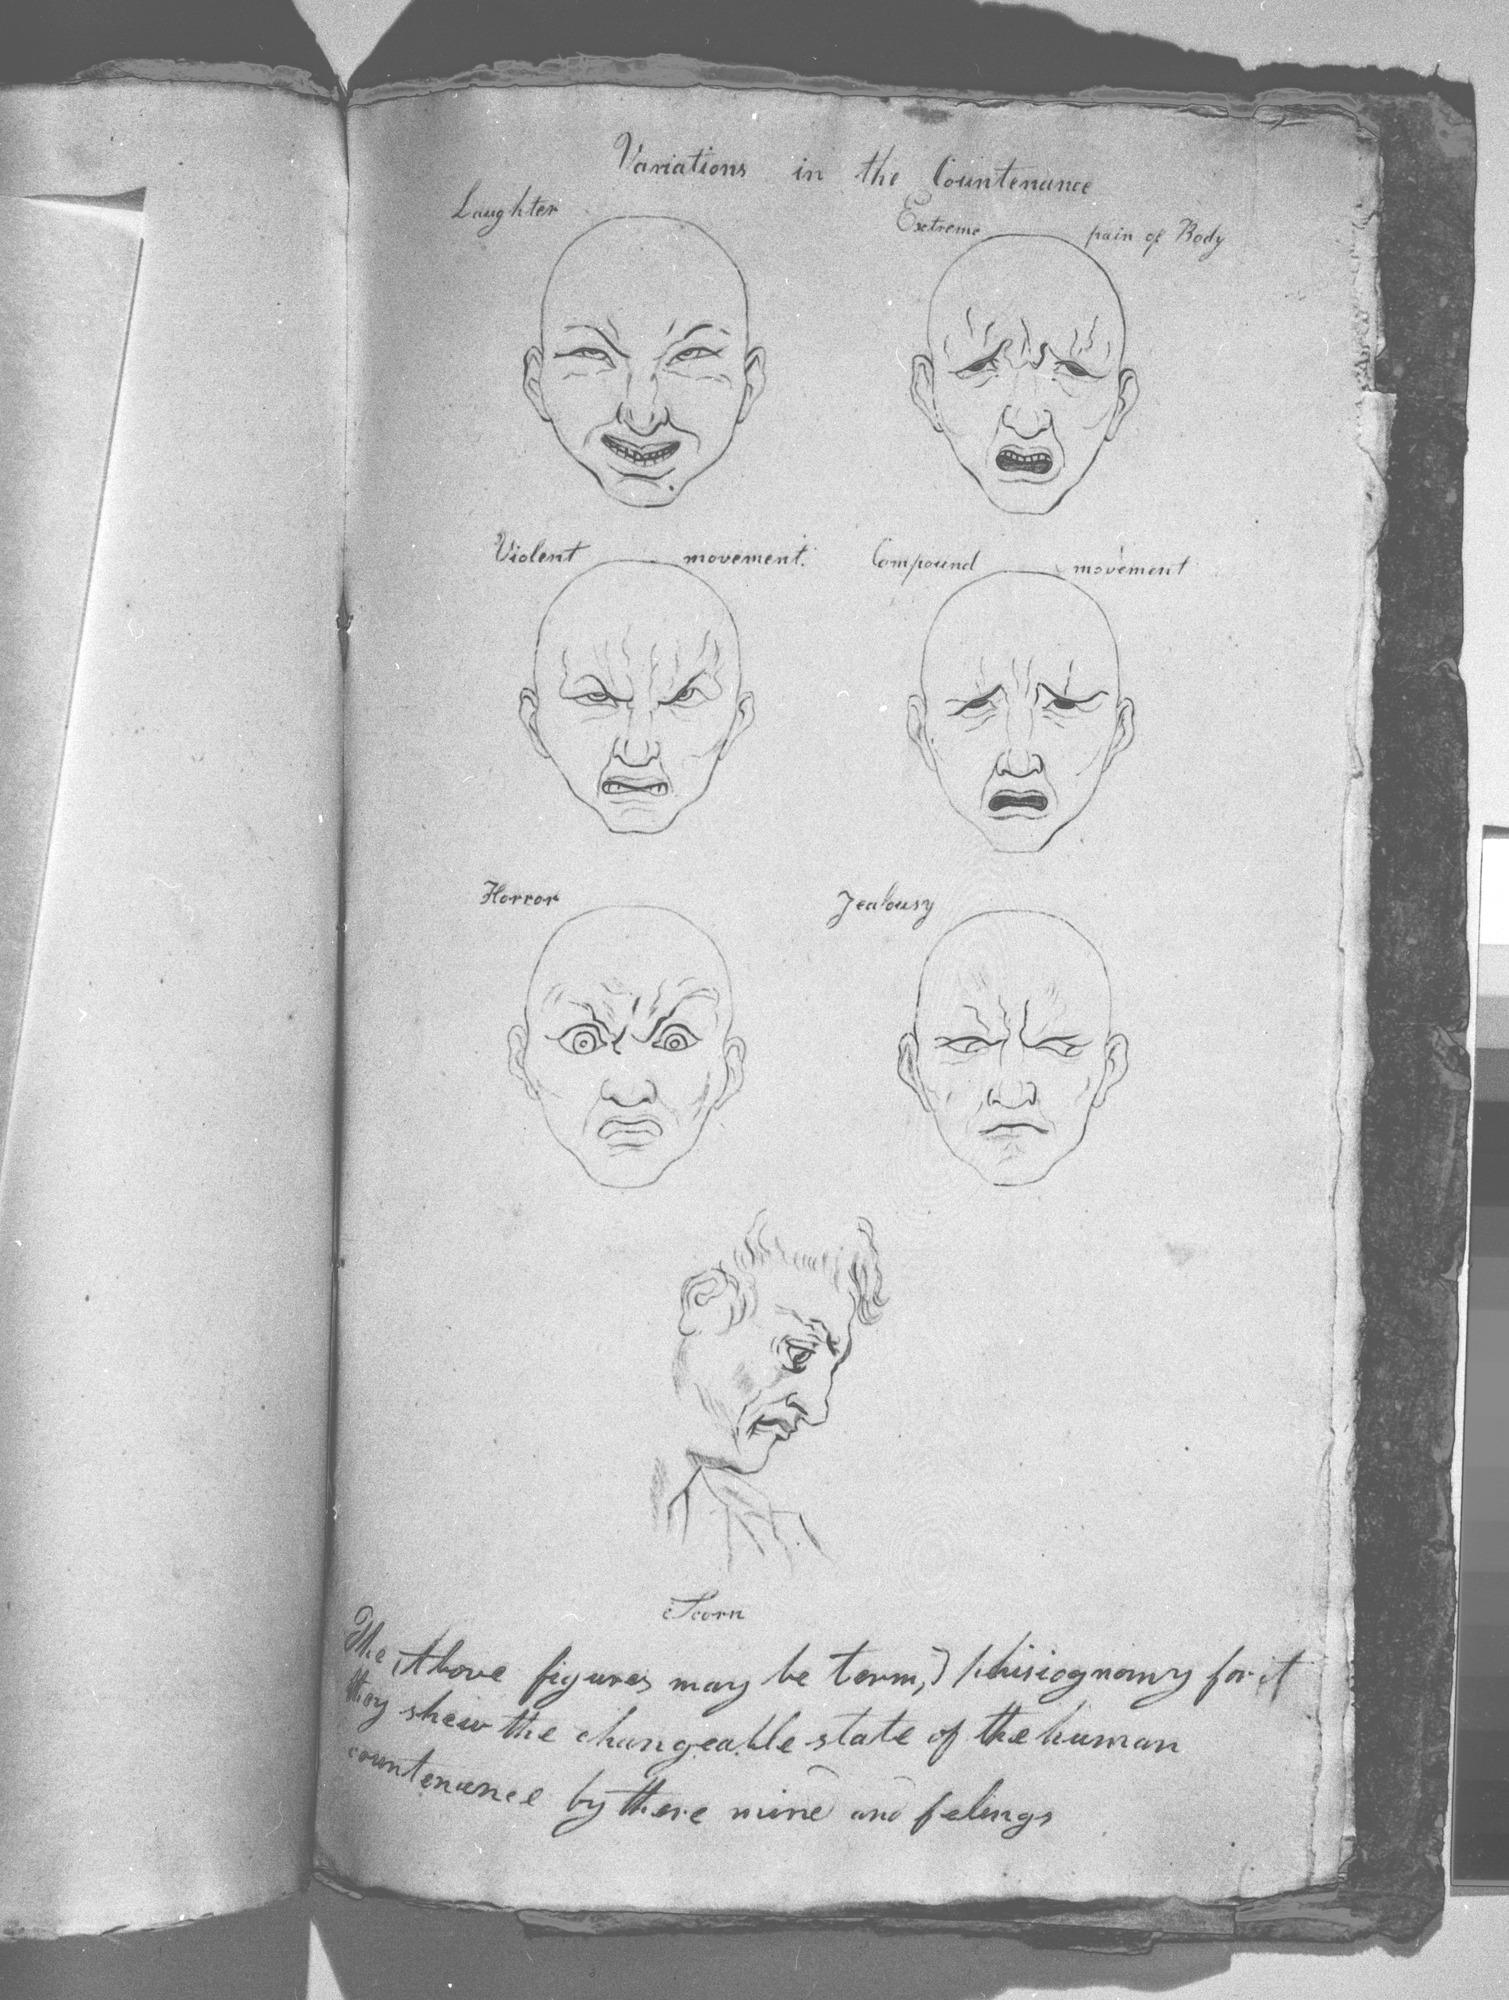 Variations in the Countenance
Laughter
Extreme pain of Body
Violent movement.
Compound movement
Horror
Jealousy
Scorn
The Above figures may be term,d Phisiognomy for it
they shew the changeable state of the human
countenance by there mind and felings